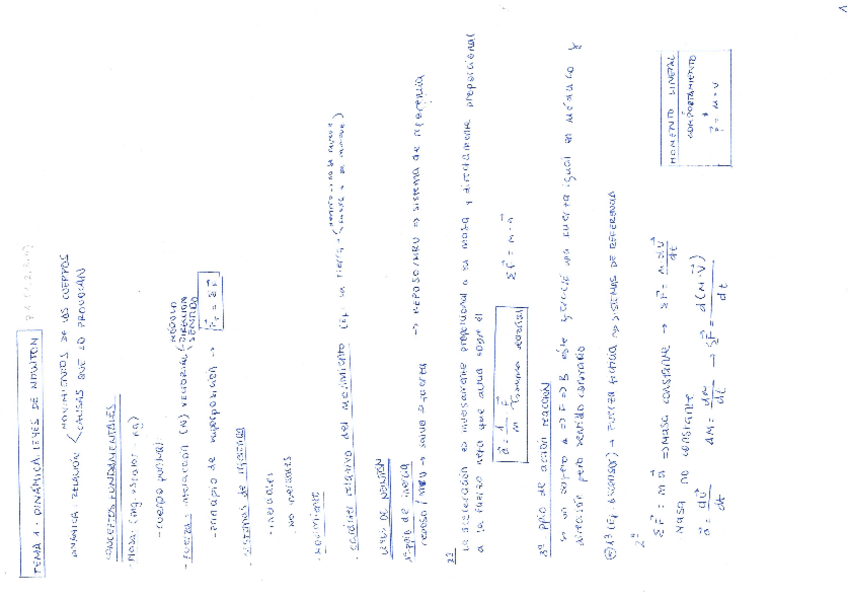 1
TEMA 1 - DINÁMICA. LEYES DE NEWTON
DINÁMICA: RELACIÓN < MOVIMIENTOS DE LOS CUERPOS
CAUSAS QUE LO PROVOCAN
CONCEPTOS FUNDAMENTALES
- Masa: (mg. escalar - kg)
- Cuerpo puntual
- Fuerza: interacción (N) vectorial < MÓDULO
DIRECCIÓN
SENTIDO
- Principio de superposición → F⃗r = Σ F⃗
- Sistemas de referencia
· inerciales
· no inerciales
· Movimiento
· Carácter relativo del movimiento (Ej. la tierra <
LEYES DE NEWTON
1º ppio de inercia
reposo / MRU → salvo F externa → REPOSO/MRU => sistema de referencia
2º
la aceleración es inversamente proporcional a su masa y directamente proporcional
a la fuerza neta que actúa sobre él
a⃗ = 1/m · F⃗ Σ F⃗ = m · a⃗
3º ppio de acción reacción
si un objeto A => F => B este ejerce una fuerza igual en módulo y
dirección pero sentido contrario
1º (Ej. ascensor) → Fuerza ficticia => SISTEMAS DE REFERENCIA
2º
Σ F⃗ = m a⃗ => Masa constante → Σ F⃗ = m · dv⃗/dt
Masa no constante
a⃗ = dv⃗/dt dM = dm/dt → Σ F⃗ = d(M · V⃗)/dt
MOMENTO LINEAL
COMPORTAMIENTO
p⃗ = m · v